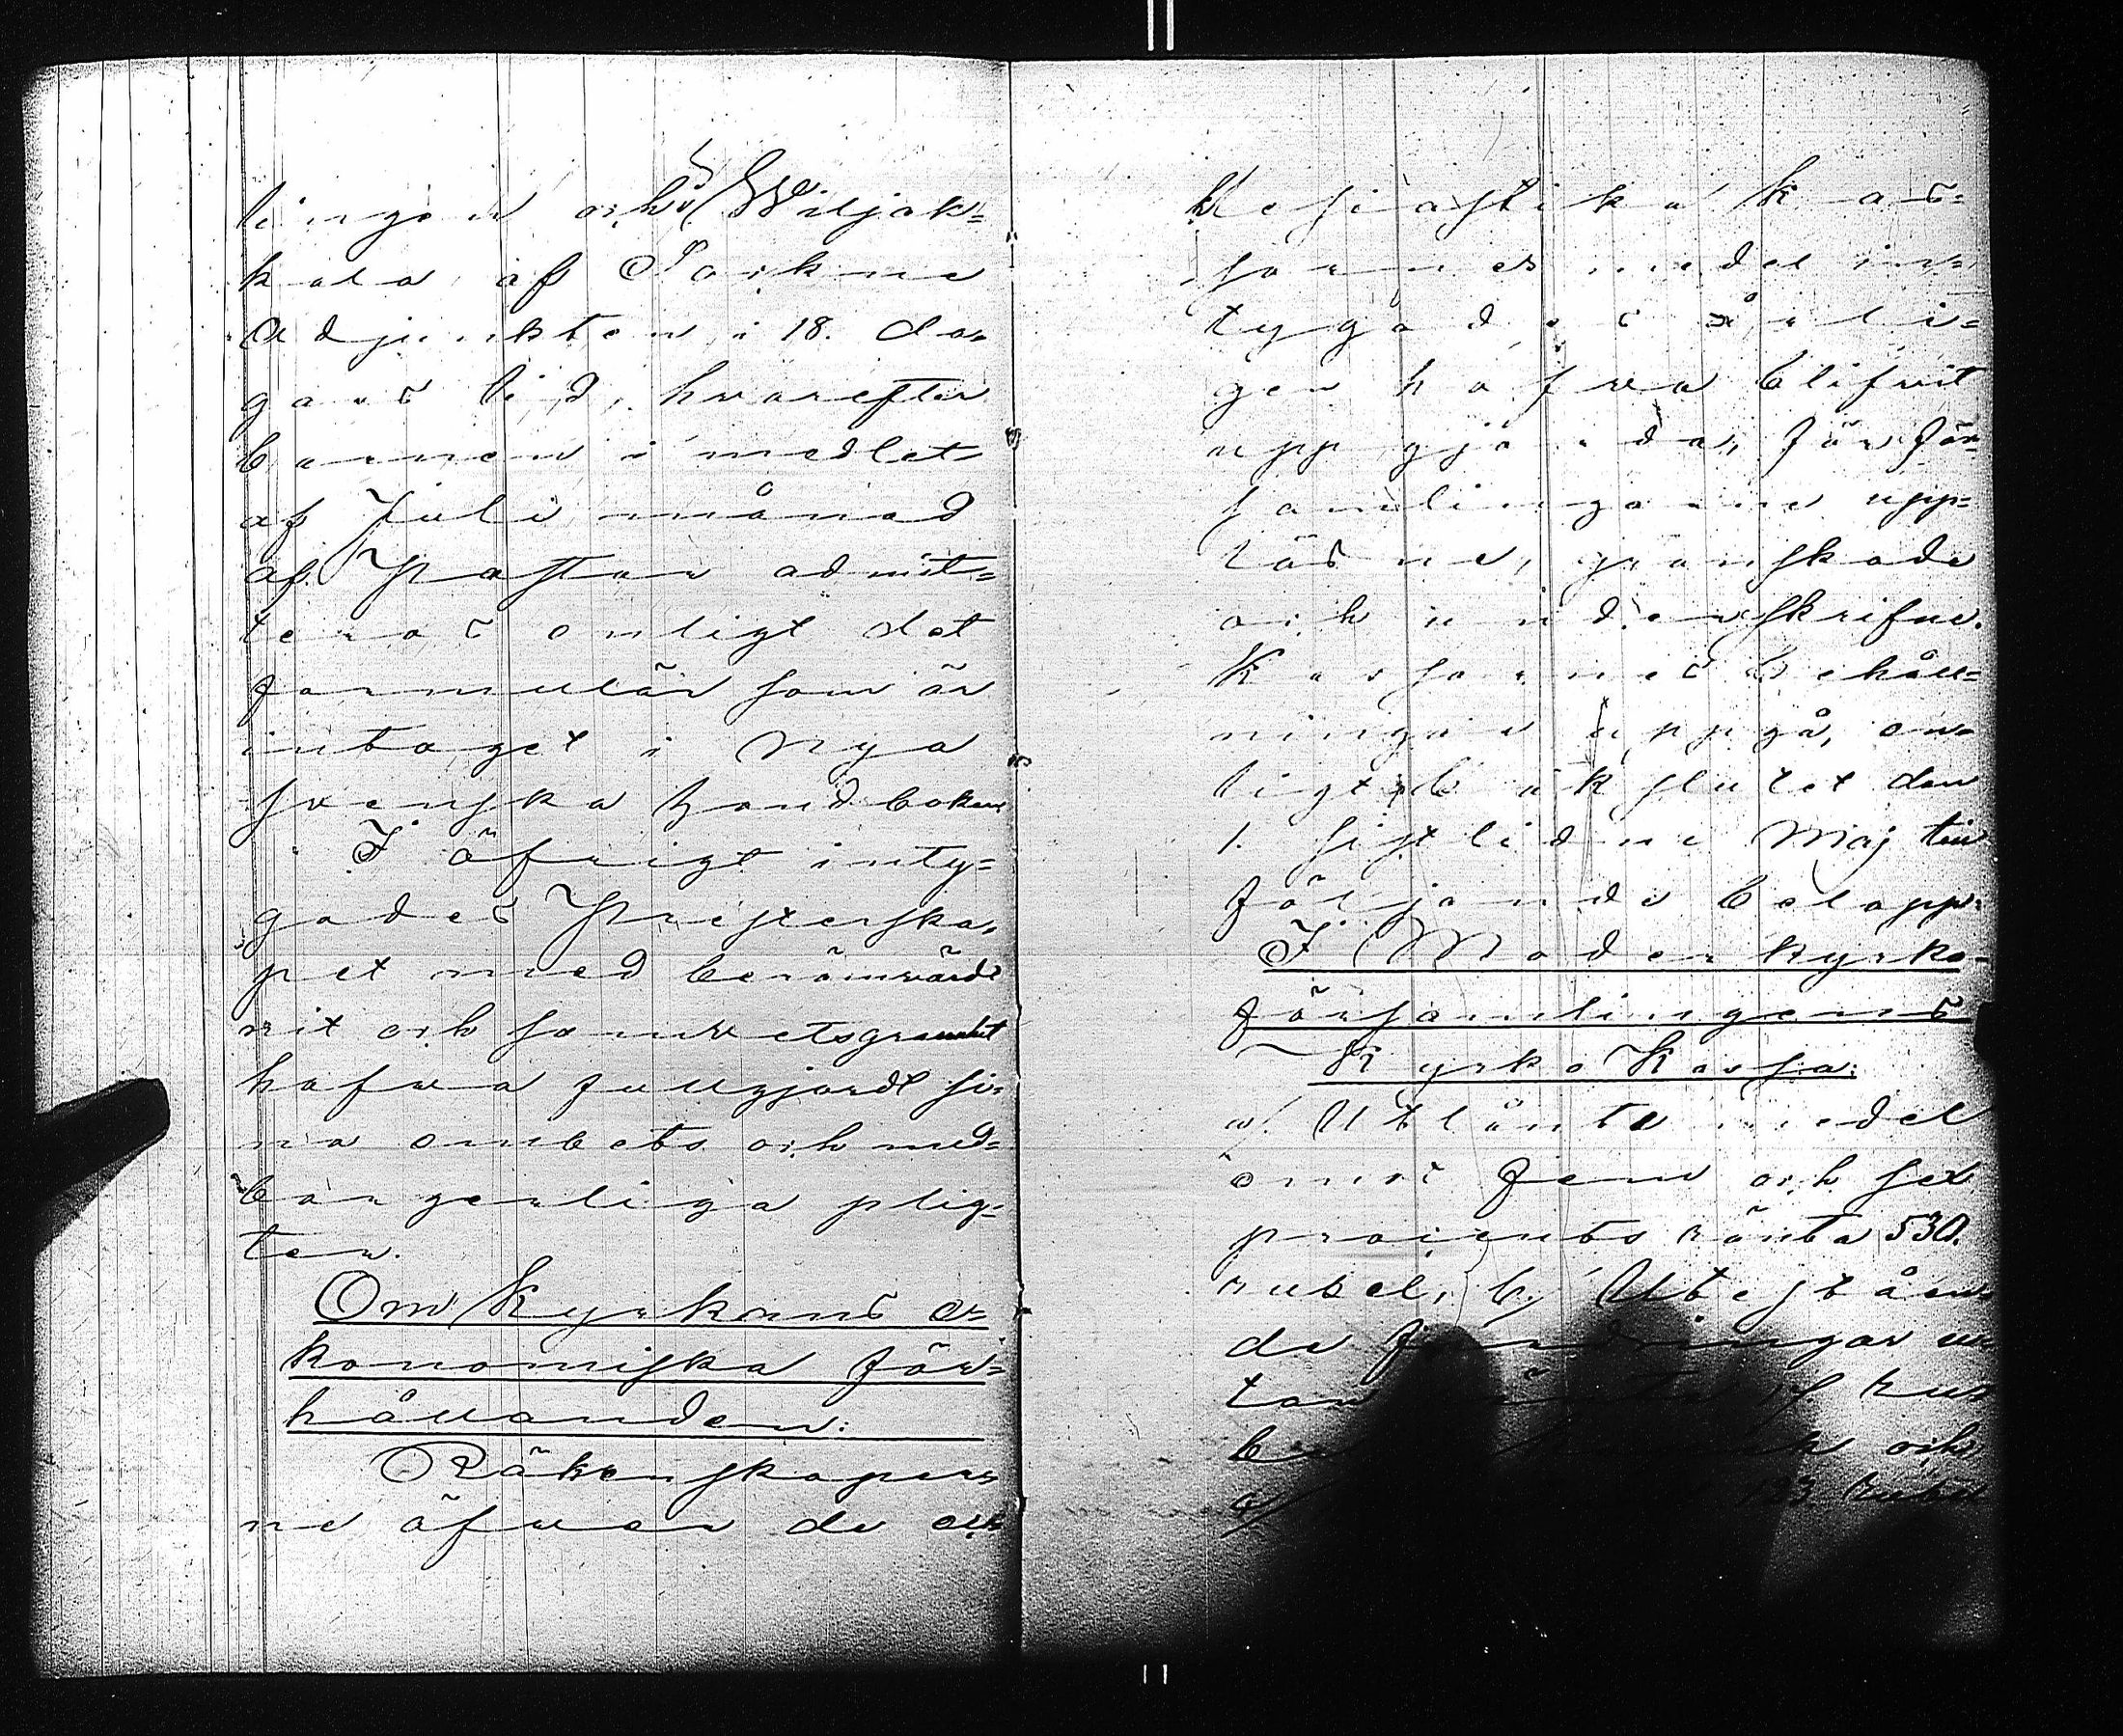 lingen och i Wiljak=
kala af Sockne
Adjunkten i 18. da,
gars tid, hvarefter
barnen i medlet
af Juli månad
af Pastor admit=
teras enligt det
formulär som är
intaget i Nya
Svenska handboken
I öfrigt inty=
gades Presterska,
pet med berömvärdt
nit och samvetsgranhet
hafva fullgjordt si,
na embets och med=
borgerliga plig=
ter.
Om Kyrkans e=
konomiska för=
hållanden:
Räkenskaper,
ne öfver de eck
klesiastika kas=
sornes medel in=
tygades årli=
gen hafva blifvit
uppgjorda, för för
samlingarne upp=
läsne, granskade
och underskrifne.
Kassornes behåll=
ningar uppgå, en=
ligt bokslutet den
1. sistlidne Maj till
följande belopp:
I Moderkyrko-
församlingens
Kyrko Kassa:
a/ Utlånte medel
emot fem och sex
procents ränta 530.
rubel, b/ Utestån
de fordringar u=
tan ränta rub
och
c/ 123 rubel